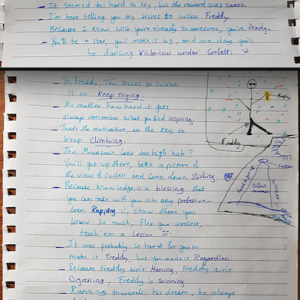 It seemed too hard to try, but the reward was sweet.
I'm here telling you my secret to sucess Freddy.
Because I know while you're already so awesome, you're ready.
You'll be a star, you'll make it big, and one day you'll
be dancing Victorious under Confetti.
Yo, Freddy, The secret to success
is to Keep trying.
No matter how hard it gets
always remember what you're keeping.
That's the motivation, on the key to
keep climbing.
The Mountain looks too high huh?
You'll get up there, take a picture of
the view & sunset and come down sliding.
Because Knowledge is a blessing that
you can take with you into any profession
been Rapping, Show them you
know so much, Pick your
teach 'em a Lesson.
It was probably so hard for you to
make it Freddy, but you made it Regardless.
Because Freddy ain't Messing, Freddy ain't
Digressing, Freddy is winning.
Running towards his dream, he always
Freddy